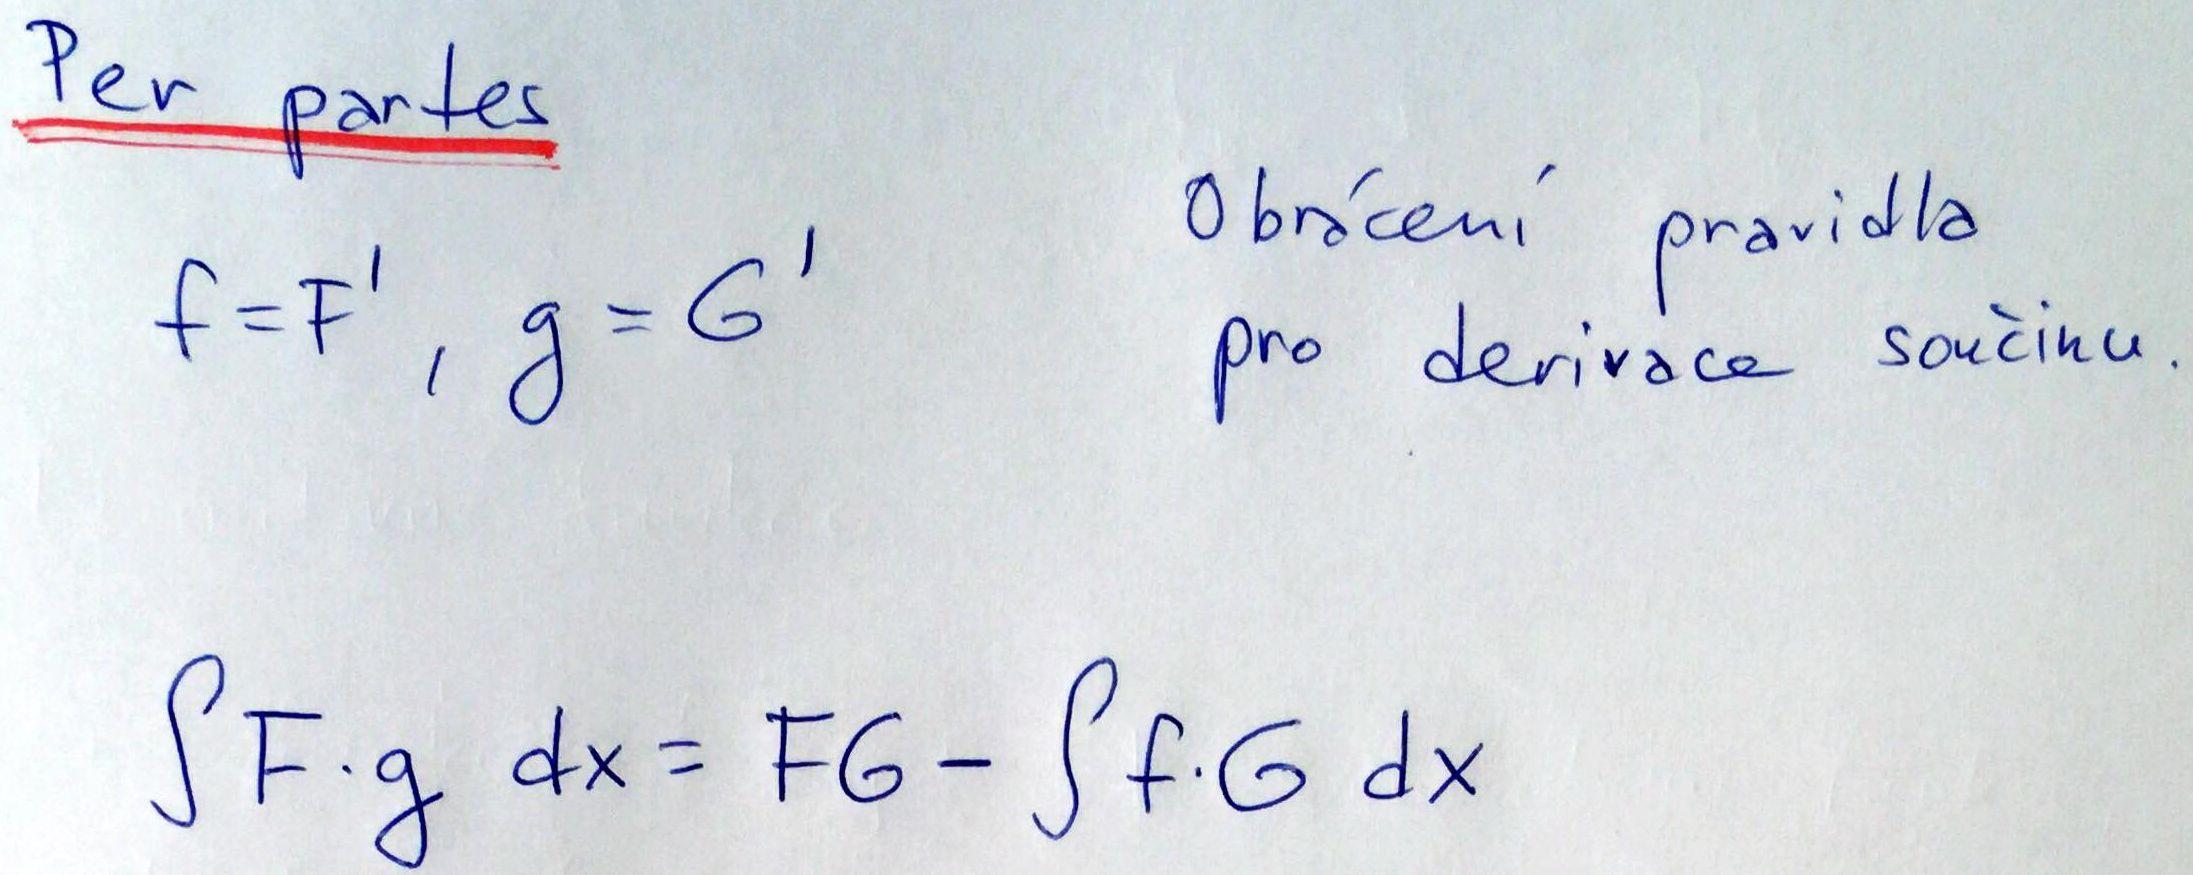 Per partes
Obrácení pravidla
f=F', g=G'
pro derivace součinu.
∫F·g dx = FG - ∫f·G dx